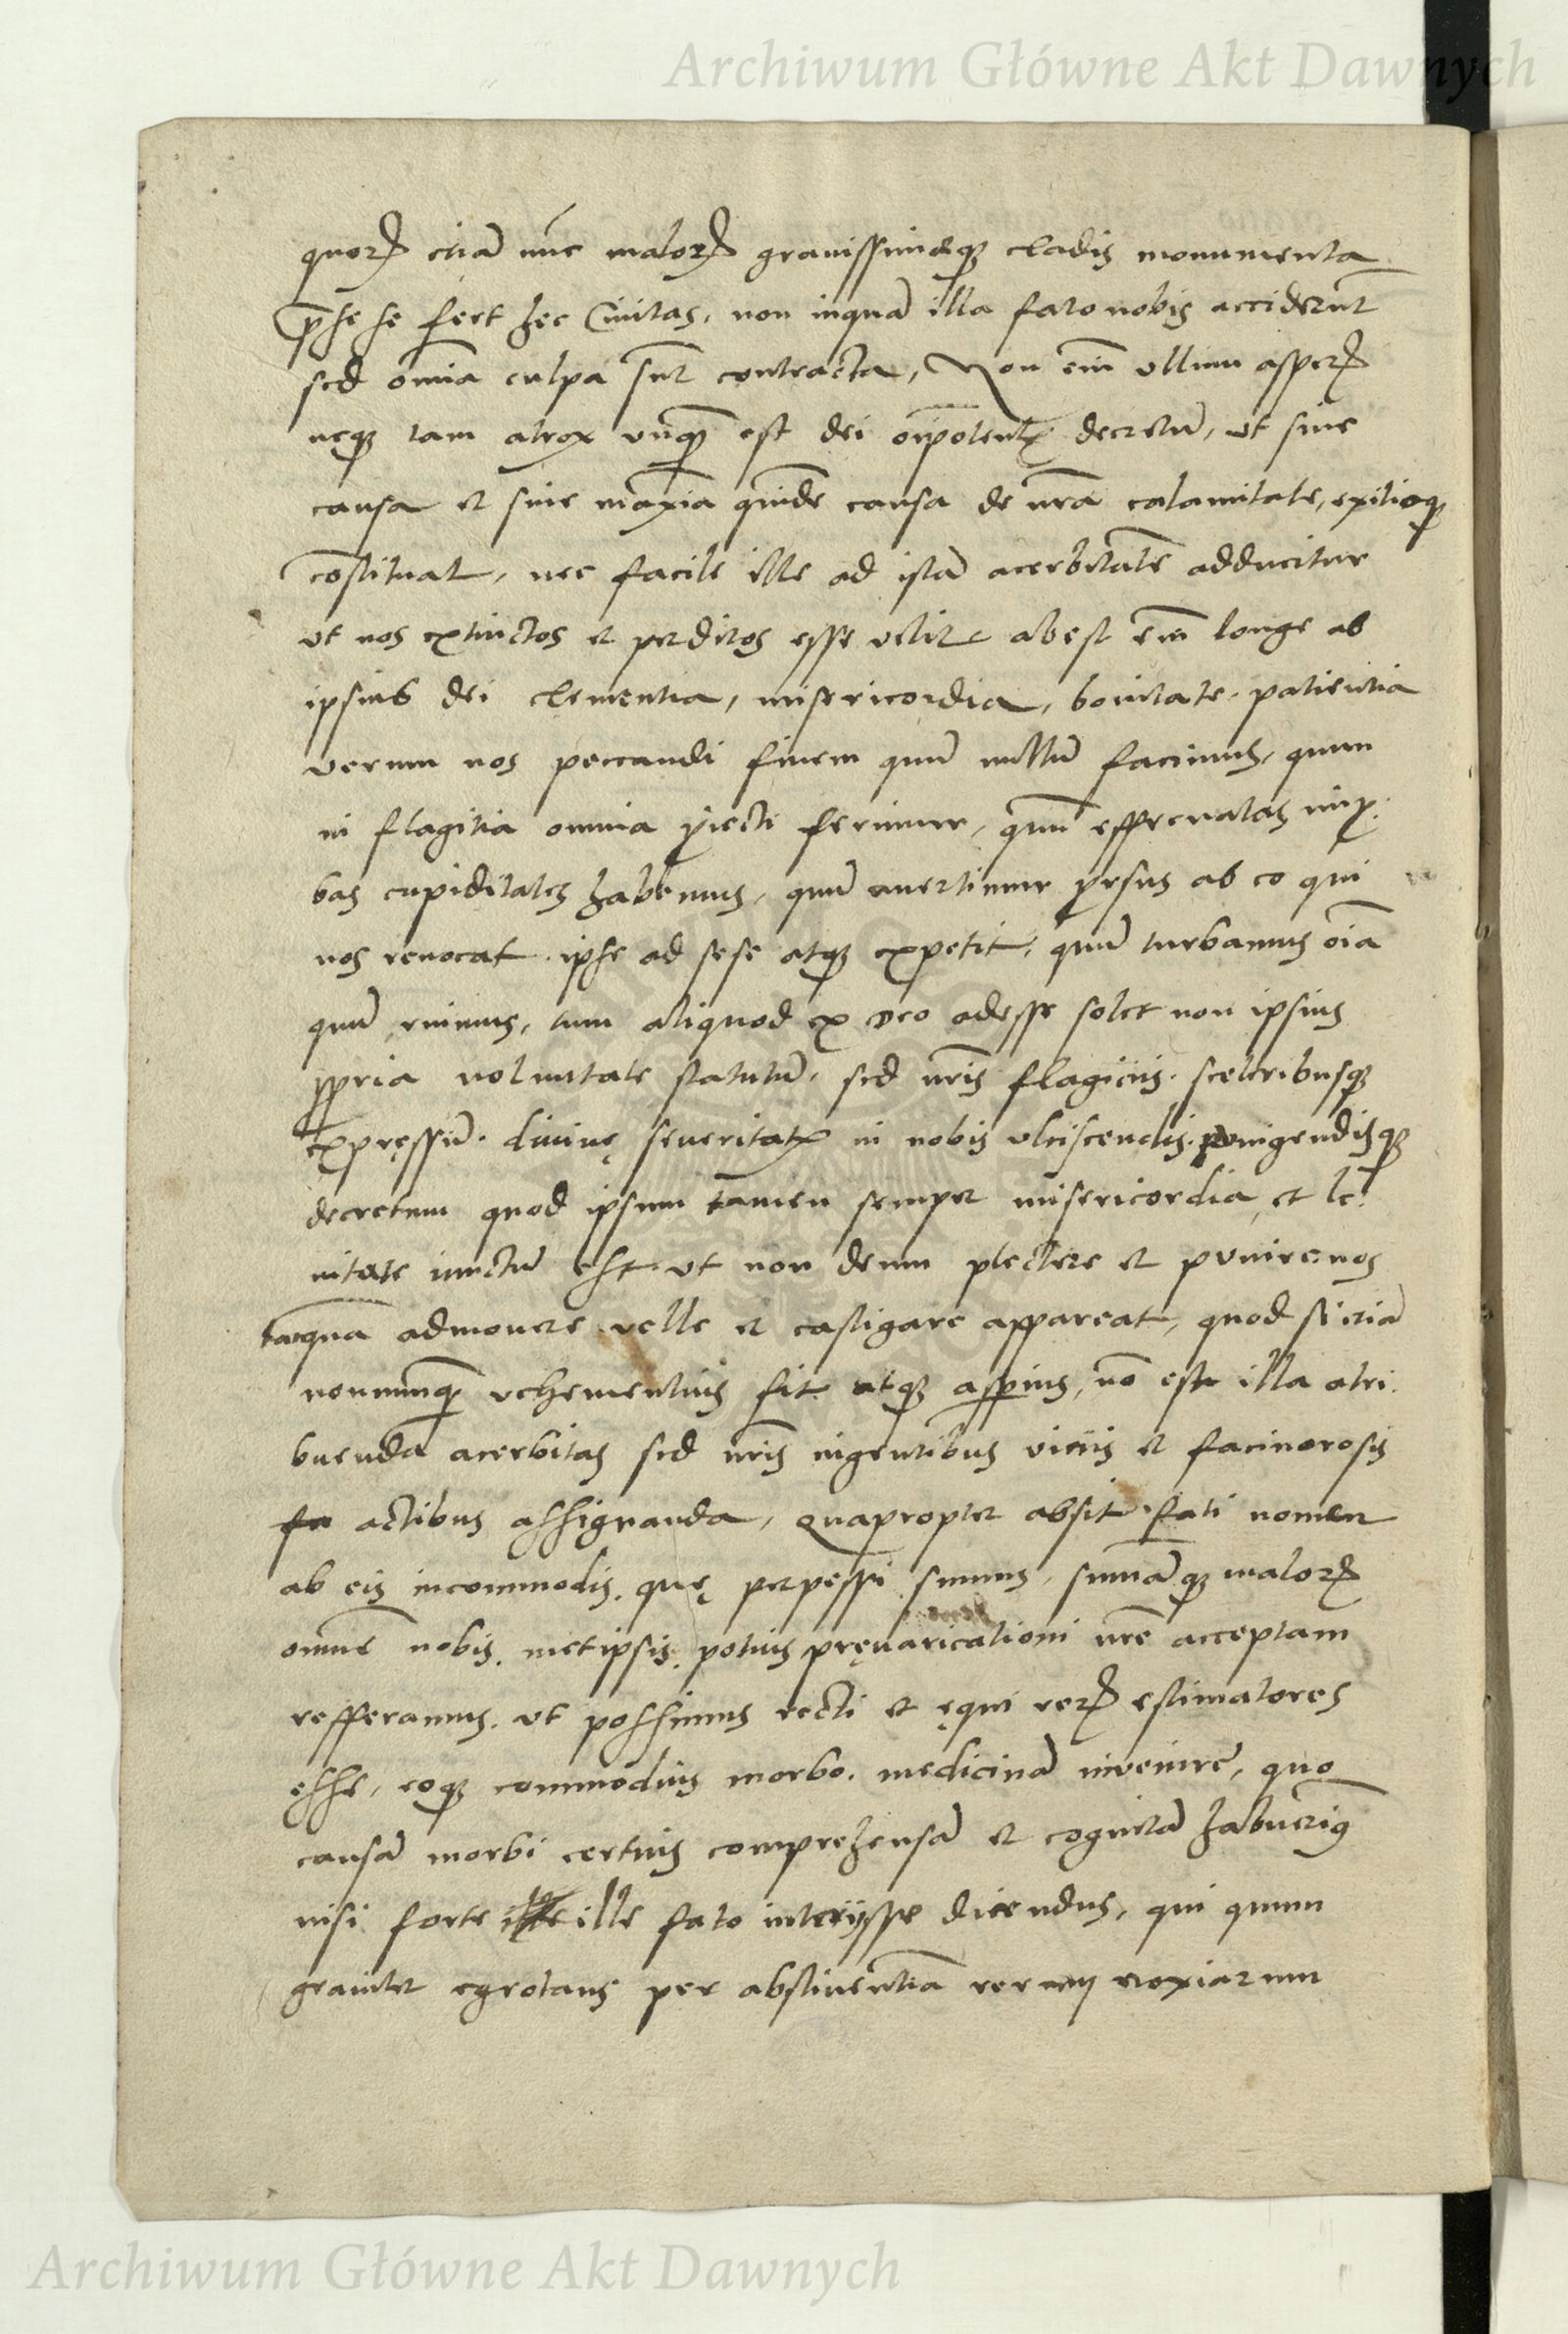 Archiwum Główne Akt Dawnych
quorꝝ etiā nūc malorꝝ grauissimæqꝫ cladis monumenta
p̄ se se fert hec Ciuitas, non inquā illa fato nobis acciderūt
sed om̄ia culpa sūt contracta, Non em̄ ullum asperꝝ
neqꝫ tam atrox vnqꝫ est dei oīpotentꝭ decretū, ut sine
causa et sine maxīa quidē causa de nrā calamitate, exitioqꝫ
cōstituat, nec facile ille ad istā acerbitatē adducitur
ut nos extinctos et perditos esse velit abest em̄ longe ab
ipsius dei clementia, misericordia, bonitate, patientia
verum nos peccandi finem quū nullū facimus, quum
in flagitia omnia ꝓiecti ferimur, quū effrenatas imꝓ:
bas cupiditates habemus, quū auertimur ꝓrsus ab eo qui
nos reuocat ipse ad sese atqꝫ expetit, quū turbamus oīa
quū ruimus, tum aliquod ex Deo adesse solet non ipsius
ꝓpria voluntate statutū, sed nrīs flagiciis, sceleribusqꝫ
expręssū. diuinę seueritatꝭ in nobis ulciscendis, pungendisqꝫ
decretum quod ipsum tamen semper misericordia et le:
nitate iunctū est ut non deum plectere et punire nos
tanqua admonere velle et castigare appareat, quod si etiā
nonnunqꝫ vehementius fit atqꝫ asperius, nō est illa atri:
buenda acerbitas sed nrīs ingentibus viciis et facinorosis
actibus assignanda, quapropter absit fati nomen
ab eis incommodis, quę perpessi sumus, sum̄āqꝫ malorꝝ
omnē nobis, metipsis, potius pręuaricationi nrē acceptam
refferamus, ut possimus recti et ęqui rerꝝ estimatores
esse, eoqꝫ commodius morbo, medicinā inuenire, quo
causā morbi certius comprehensā et cognitā habuerimꝰ
nisi forte ille fato interiisse dicendus, qui quum
grauiter egrotans per abstinentiā rerum noxiarum
Archiwum Główne Akt Dawnych